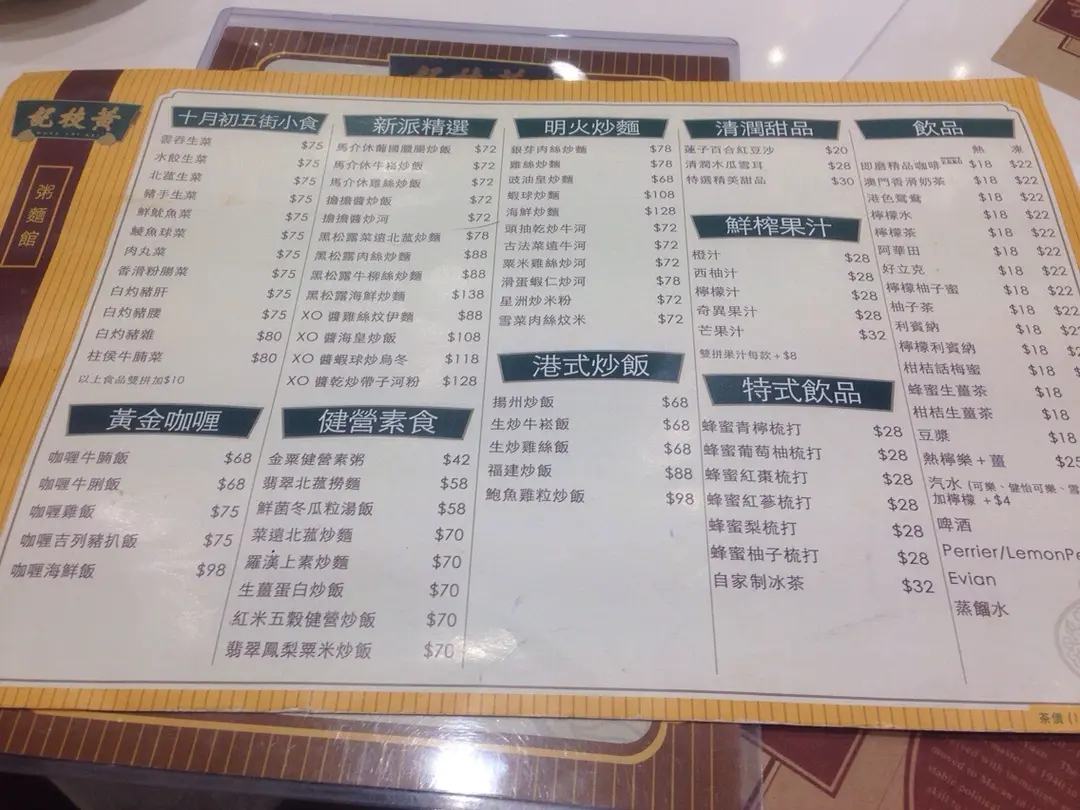 黃枝記
WONG CHI KEI
粥麵館
十月初五街小食
雲吞生菜 $75
水餃生菜 $75
北菰生菜 $75
豬手生菜 $75
鮮魷魚菜 $75
鯪魚球菜 $75
肉丸菜 $75
香滑粉腸菜 $75
白灼豬肝 $75
白灼豬腰 $75
白灼豬雜 $80
柱侯牛腩菜 $80
以上食品雙拼加$10
黃金咖喱
咖喱牛腩飯 $68
咖喱牛脷飯 $68
咖喱雞飯 $75
咖喱吉列豬扒飯 $75
咖喱海鮮飯 $98
新派精選
馬介休葡國臘腸炒飯 $72
馬介休牛崧炒飯 $72
馬介休雞絲炒飯 $72
擔擔醬炒飯 $72
擔擔醬炒河 $72
黑松露菜遠北菰炒麵 $78
黑松露肉絲炒麵 $88
黑松露牛柳絲炒麵 $88
黑松露海鮮炒麵 $138
XO 醬雞絲炆伊麵 $88
XO 醬海皇炒飯 $108
XO 醬蝦球炒烏冬 $118
XO 醬乾炒帶子河粉 $128
健營素食
金粟健營素粥 $42
翡翠北菰撈麵 $58
鮮菌冬瓜粒湯飯 $58
菜遠北菰炒麵 $70
羅漢上素炒麵 $70
生薑蛋白炒飯 $70
紅米五穀健營炒飯 $70
翡翠鳳梨粟米炒飯 $70
明火炒麵
銀芽肉絲炒麵 $78
雞絲炒麵 $78
豉油皇炒麵 $68
蝦球炒麵 $108
海鮮炒麵 $128
頭抽乾炒牛河 $72
古法菜遠牛河 $72
粟米雞絲炒河 $72
滑蛋蝦仁炒河 $78
星洲炒米粉 $72
雪菜肉絲炆米 $72
港式炒飯
揚州炒飯 $68
生炒牛崧飯 $68
生炒雞絲飯 $68
福建炒飯 $88
鮑魚雞粒炒飯 $98
清潤甜品
蓮子百合紅豆沙 $20
清潤木瓜雪耳 $28
特選精美甜品 $30
鮮榨果汁
橙汁 $28
西柚汁 $28
檸檬汁 $28
奇異果汁 $28
芒果汁 $32
雙拼果汁每款+$8
特式飲品
蜂蜜青檸梳打 $28
蜂蜜葡萄柚梳打 $28
蜂蜜紅棗梳打 $28
蜂蜜紅蔘梳打 $28
蜂蜜梨梳打 $28
蜂蜜柚子梳打 $28
自家制冰茶 $32
飲品
熱 凍
即磨精品咖啡 $18 $22
澳門香滑奶茶 $18 $22
港色鴛鴦 $18 $22
檸檬水 $18 $22
檸檬茶 $18 $22
阿華田 $18 $22
好立克 $18 $22
檸檬柚子蜜 $18 $22
柚子茶 $18 $22
利賓納 $18
檸檬利賓納 $18
柑桔話梅蜜 $18
蜂蜜生薑茶 $18
柑桔生薑茶 $18
豆漿 $18
熱檸樂+薑
汽水 (可樂、健怡可樂、雪
加檸檬 +$4
啤酒
Perrier/LemonPe
Evian
蒸餾水
茶價